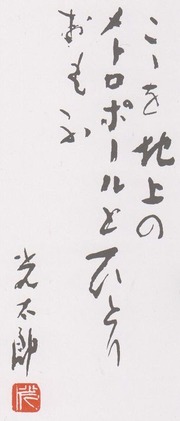 こゝを地上の
メトロポールとひとり
おもふ
光太郎